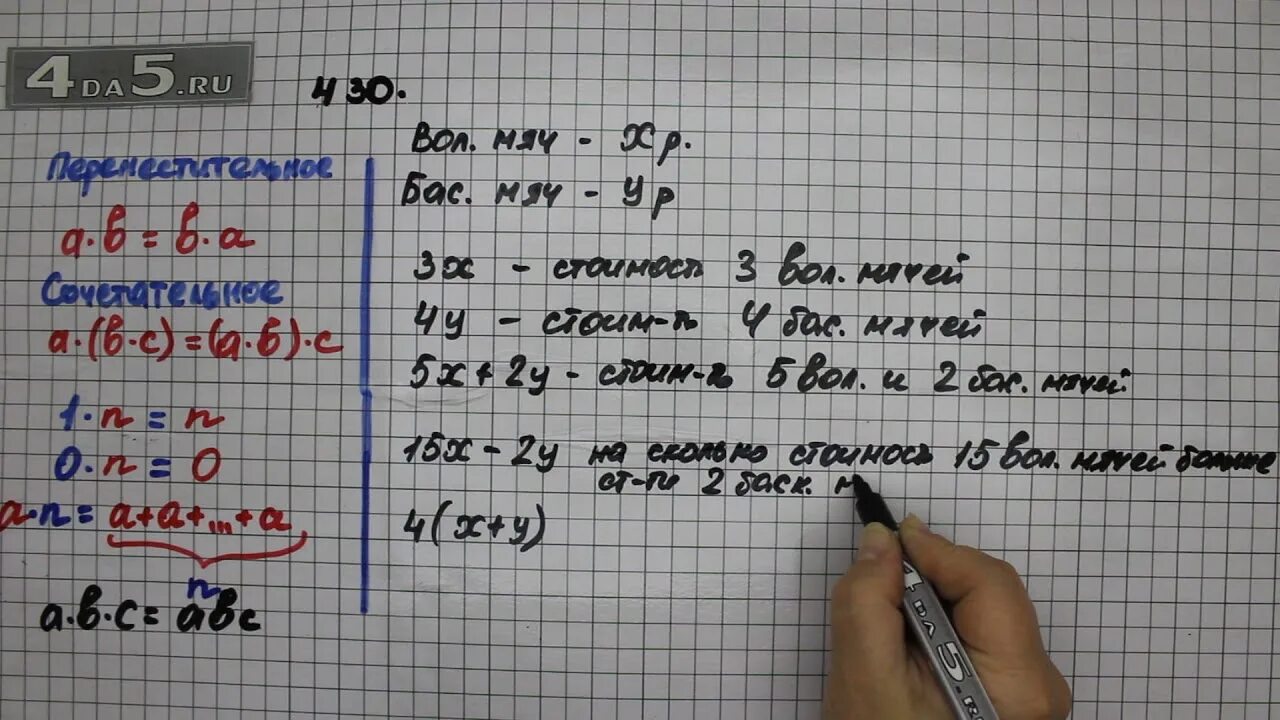 4DA5.RU
430.
Переместительное
a·в = в·a
Сочетательное
a·(в·c)=(a·в)·c
1·n = n
0·n = 0
a·n = a+a+...+a
n
a·в·c = aвc
Вол. мяч - х р.
Бас. мяч - у р
3х - стоимость 3 вол. мячей
4у - стоим-ть 4 бас. мячей
5х + 2у - стоим-ть 5 вол. и 2 бас. мячей
15х - 2у на сколько стоимость 15 вол. мячей больше
ст-ти 2 баск. м
4(х+у)
4 DA 5.RU